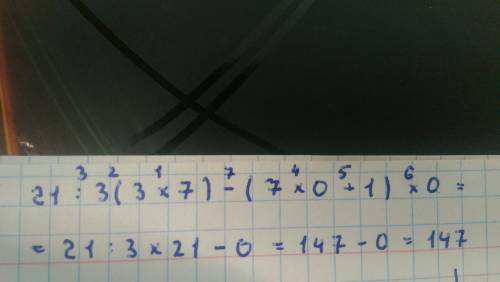 21 :³ 3²( 3 ×¹ 7 ) -⁷ ( 7 ×⁴ 0 +⁵ 1 ) ×⁶ 0 =
= 21 : 3 × 21 - 0 = 147 - 0 = 147